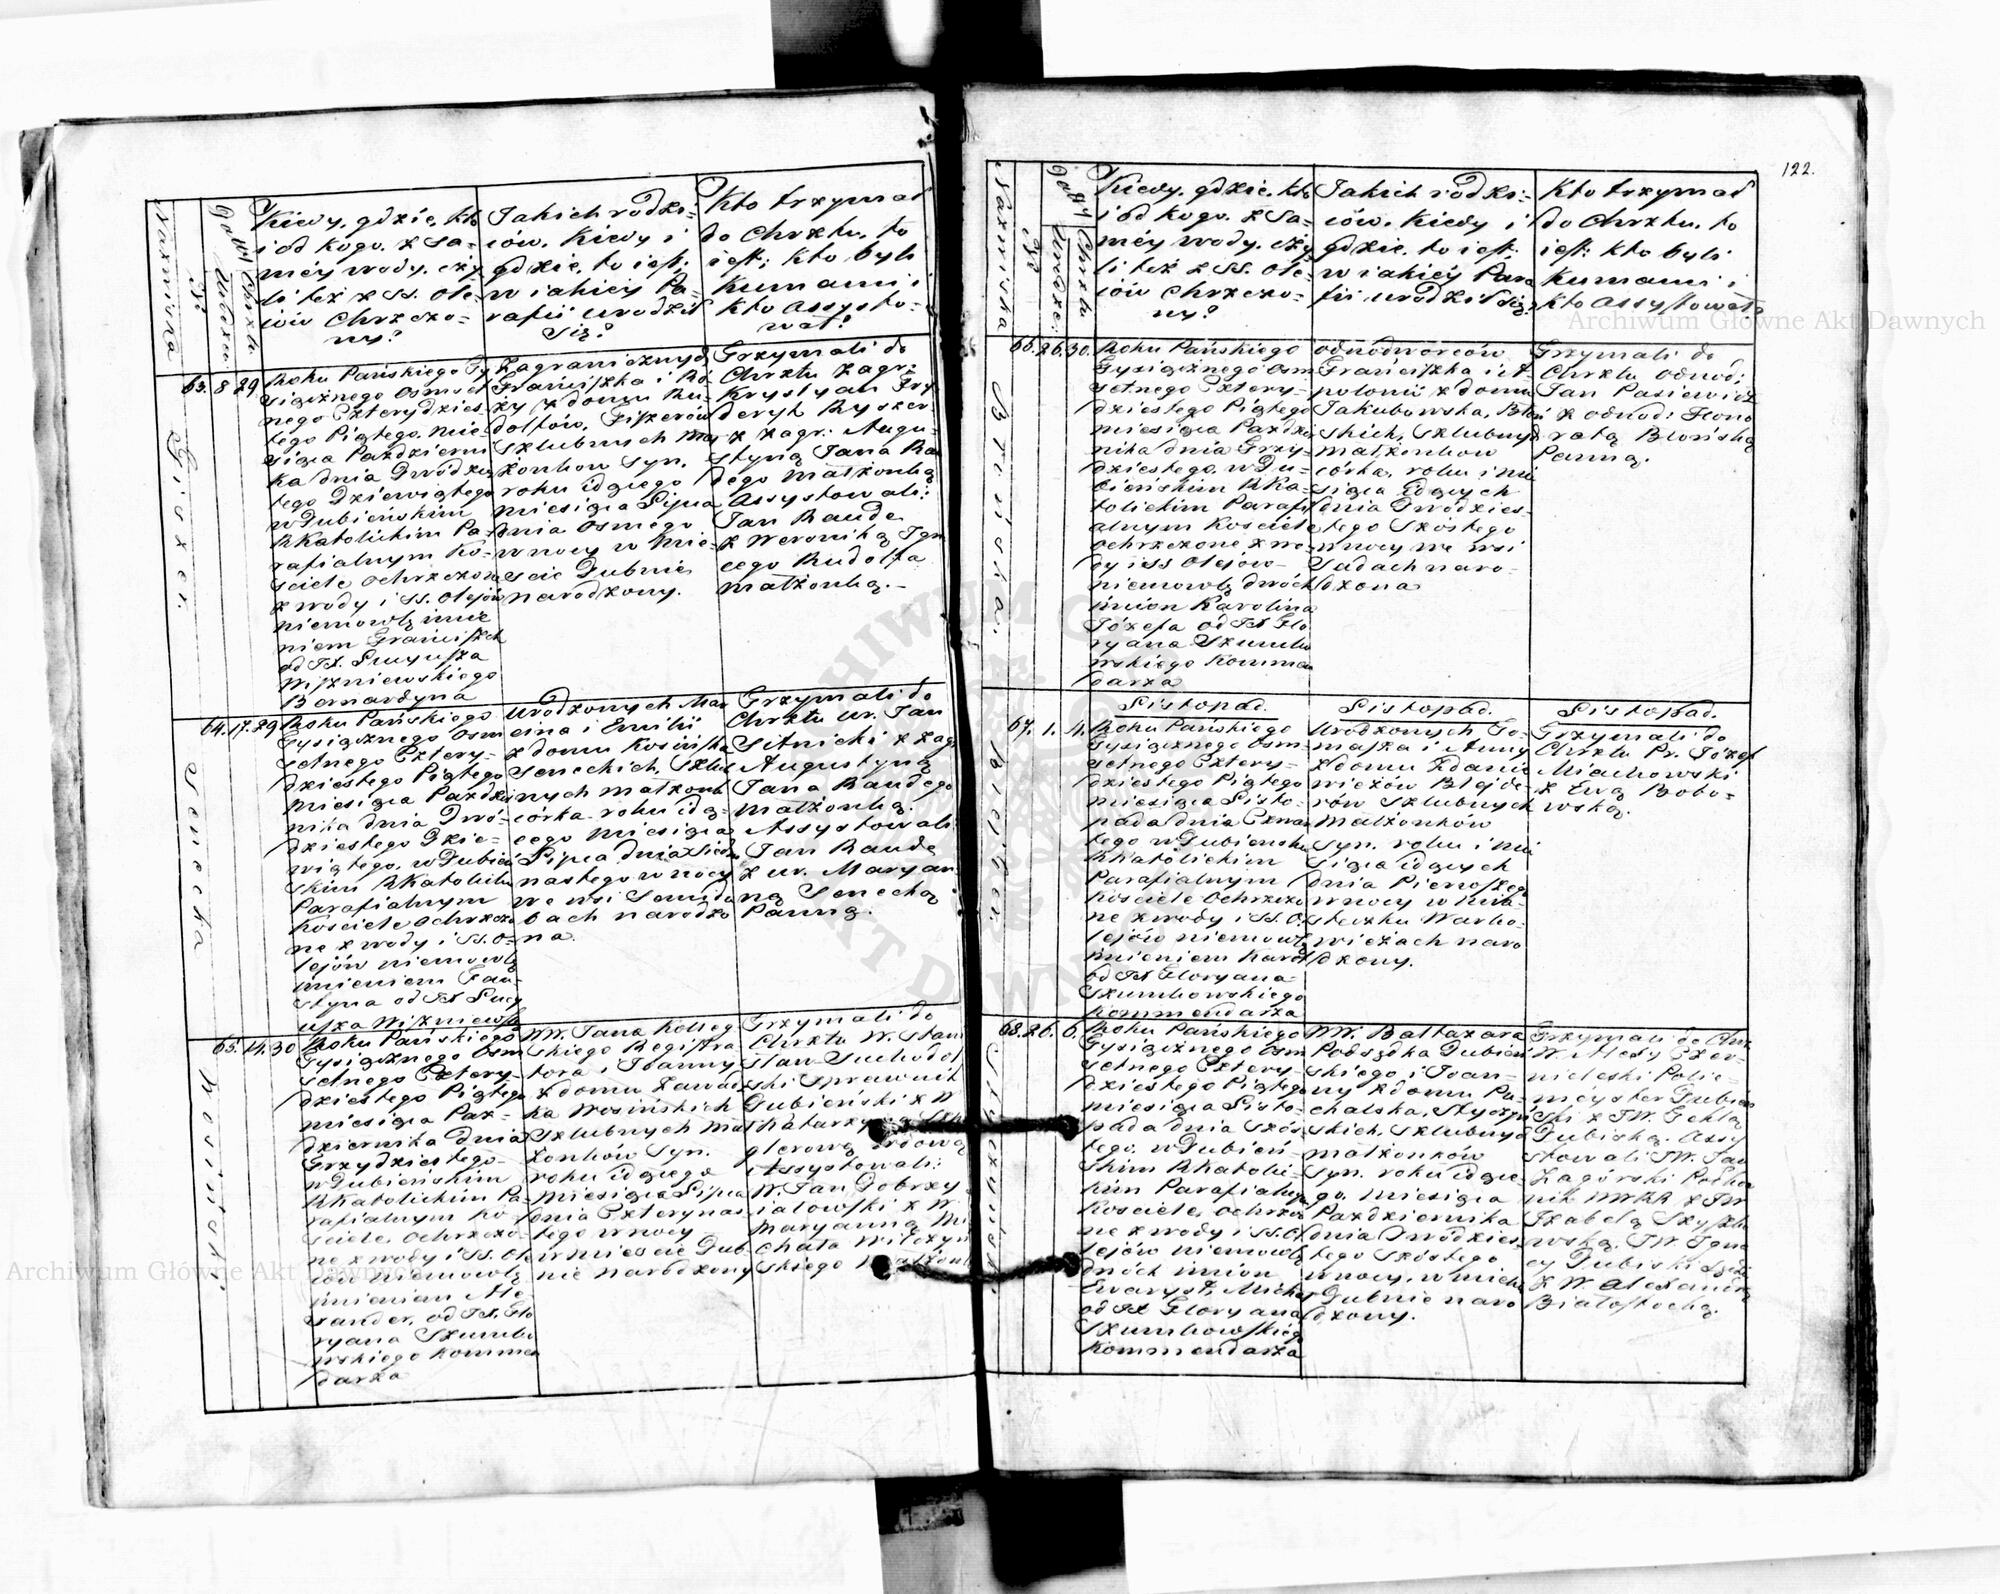 122.
Nazwiska
№
Gody
Urodze:
Chrztu
Kiedy, gdzie, kto
i od kogo, z Sa-
méy wody, czy
li też z SS. Ole-
iów Chrzczo-
ny?
Jakich rodzi-
ców, Kiedy i
gdzie, to iest:
w iakiey Pa-
rafii urodził
Się?
Kto trzymał
do Chrztu, to
iest; kto byli
Kumami i
kto assysto-
wał?
63. 8 29.
Fiszer.
Roku Pańskiego Ty
siącznego Osmset
nego Czterydzies
tego Piątego, mie-
siąca Październi
ka dnia Dwódzies
tego Dziewiątego
w Dubieńskim
RKatolickim Pa-
rafialnym Ko-
sciele ochrzczone
z wody i SS. Olejów
niemowlę imie
niem Franciszek
od JX. Eucyusza
Wiszniewskiego
Bernardyna
Zagranicznych
Franciszka i Ró-
ży z domu Ru-
dolfów, Fiszerów
Szlubnych Mał
żonków Syn,
roku idącego
miesiąca Lipca
dnia Osmego
w nocy w Mie-
scie Dubnie
narodzony.
Trzymali do
Chrztu zagr:
Krystyan Fry
deryk Ryszer
z zagr: Augu-
styną Jana Rau
dego małżonką
Assystowali:
Jan Raude
z Weroniką Ign
cego Rudolfa
małżonką.
64. 17. 29
Senecka
Roku Pańskiego
Tysiącznego Osm
setnego Cztery-
dziestego Piątego
miesiąca Paździer
nika dnia Dwó-
dziestego Dzie-
wiątego, w Dubień
skim RKatolickim
Parafialnym
Kościele Ochrzczo
ne z wody i SS. O-
lejów niemowlę
imieniem Fau-
styna od JX Eucy
usza Wiszniewsk
Urodzonych Mar
cina i Emilii
z domu Kosińska
Seneckich, Szlub
nych małżonk
corka roku idą-
cego miesiąca
Lipca dnia Siedm
nastego w nocy
we wsi Semidu
bach narodzo
na.
Trzymali do
Chrztu Ur. Jan
Sitnicki z zagr
Augustyną
Jana Raudego
małżonką.
Assystowali
Jan Raude
z ur. Maryan
ną Senecką
Panną.
65. 14. 30
Wosiński
Roku Pańskiego
Tysiącznego Osm
setnego Cztery-
dziestego Piątego
miesiąca Paź-
dziernika dnia
Trzydziestego
w Dubieńskim
RKatolickim Pa-
rafialnym Ko-
sciele, Ochrzczo-
ne z wody i SS. Ole
iów niemowlę
imieniem Ale
xander, od JX. Flo
ryana Szumbo
wskiego Kommen
darza
WW. Jana Kolleg
skiego Registra
tora i Joanny
z domu Zawadz
ka Wosińskich
Szlubnych mał
żonków Syn.
roku idącego
miesiąca Lipca
dnia Czternas
tego w nocy
w mieście Dub
nie narodzony
Trzymali do
Chrztu W. Stani
sław Suchodol
ski Sprawnik
Dubieński z W
Katarzyną
glerową
i Assystowali:
W. Jan Dobrzy
iałowski z W
Maryanną Mi
chała Wilczyń
skiego małżonk
Nazwiska
№
Gody
Urodze:
Chrztu
Kiedy, gdzie, kto
i od kogo, z Sa-
méy wody, czy
li też z SS. Ole-
iów Chrzczo-
ny?
Jakich rodzi-
ców, Kiedy i
gdzie, to iest:
w iakiéy Para
fii urodził Się?
Kto trzymał
do Chrztu, to
iest: kto byli
kumami i
kto Assystował?
66. 26. 30.
Błońska.
Roku Pańskiego
Tysiącznego Osm
setnego Cztery-
dziestego Piątego
miesiąca Paździer
nika dnia Trzy-
dziestego, w Du-
bieńskim RKa-
tolickim Parafi
alnym Kościele
ochrzczone z wo-
dy i SS Olejów
niemowlę dwóch
imion Karolina
Józefa od JX Flo
ryana Szumbo
wskiego Kommen
darza
Odnodworców
Franciszka i A-
polonii z domu
Jakubowska, Błoń
skich, Szlubnych
małżonków
córka, roku i mie
siąca idących
dnia Dwódzies-
tego Szóstego
w nocy we wsi
Sadach naro-
dzona
Trzymali do
Chrztu Odnod:
Jan Pasiewicz
z odnod: Hono
ratą Błońską
Panną.
Listopad.
Listopad.
Listopad.
67. 1. 4.
Blejder.
Roku Pańskiego
Tysiącznego Osm-
setnego Cztery-
dziestego Piątego
miesiąca Listo-
pada dnia Czwar
tego w Dubieńsk
RKatolickim
Parafialnym
Kościele Ochrzczo
ne z wody i SS. O.
lejów niemowlę
imieniem Karol
od JX Floryana
Szumbowskiego
Kommendarza
Urodzonych To-
masza i Anny
z domu Zdanie
wiczów Blejde-
rów Szlubnych
Małżonków
Syn. roku i mie
siąca idących
dnia Pierwszego
w nocy w Mia-
steczku Warko-
wiczach naro
dzony.
Trzymali do
Chrztu Pr. Józef
Miachowski
z Ewą Bobo-
wską.
68. 26. 6.
Styczyński.
Roku Pańskiego
Tysiącznego Osm
setnego Cztery-
dziestego Piątego
miesiąca Listo-
pada dnia Szós-
tego, w Dubień-
skim RKatolic-
kim Parafialny
Kościele, Ochrzczo
ne z wody i SS. O
lejów niemowlę
dwóch imion
Ewaryst, Michał
od JX Floryana
Szumbowskiego
Kommendarza
WW. Baltazara
Podsędka Dubień
skiego i Joan-
ny z domu Pa-
chalska, Styczyń
skich, Szlubnych
małżonków
Syn. roku idące
go, miesiąca
Października
dnia Dwódzies-
tego Szóstego
w nocy, w mieście
Dubnie naro
dzony.
Trzymali do Chrz
W. Alexy Czer-
nieleski Polic-
meyster Dubień
ski z JW. Teklą
Dubiską. Assy
stowali JW. Jan
Zagórski
nik WWRR z JW
Izabelą
wską. JW Igna
cy Dubiski Sędz
z W. Alexandrą
Białostocką.
Archiwum Główne Akt Dawnych
Archiwum Główne Akt Dawnych